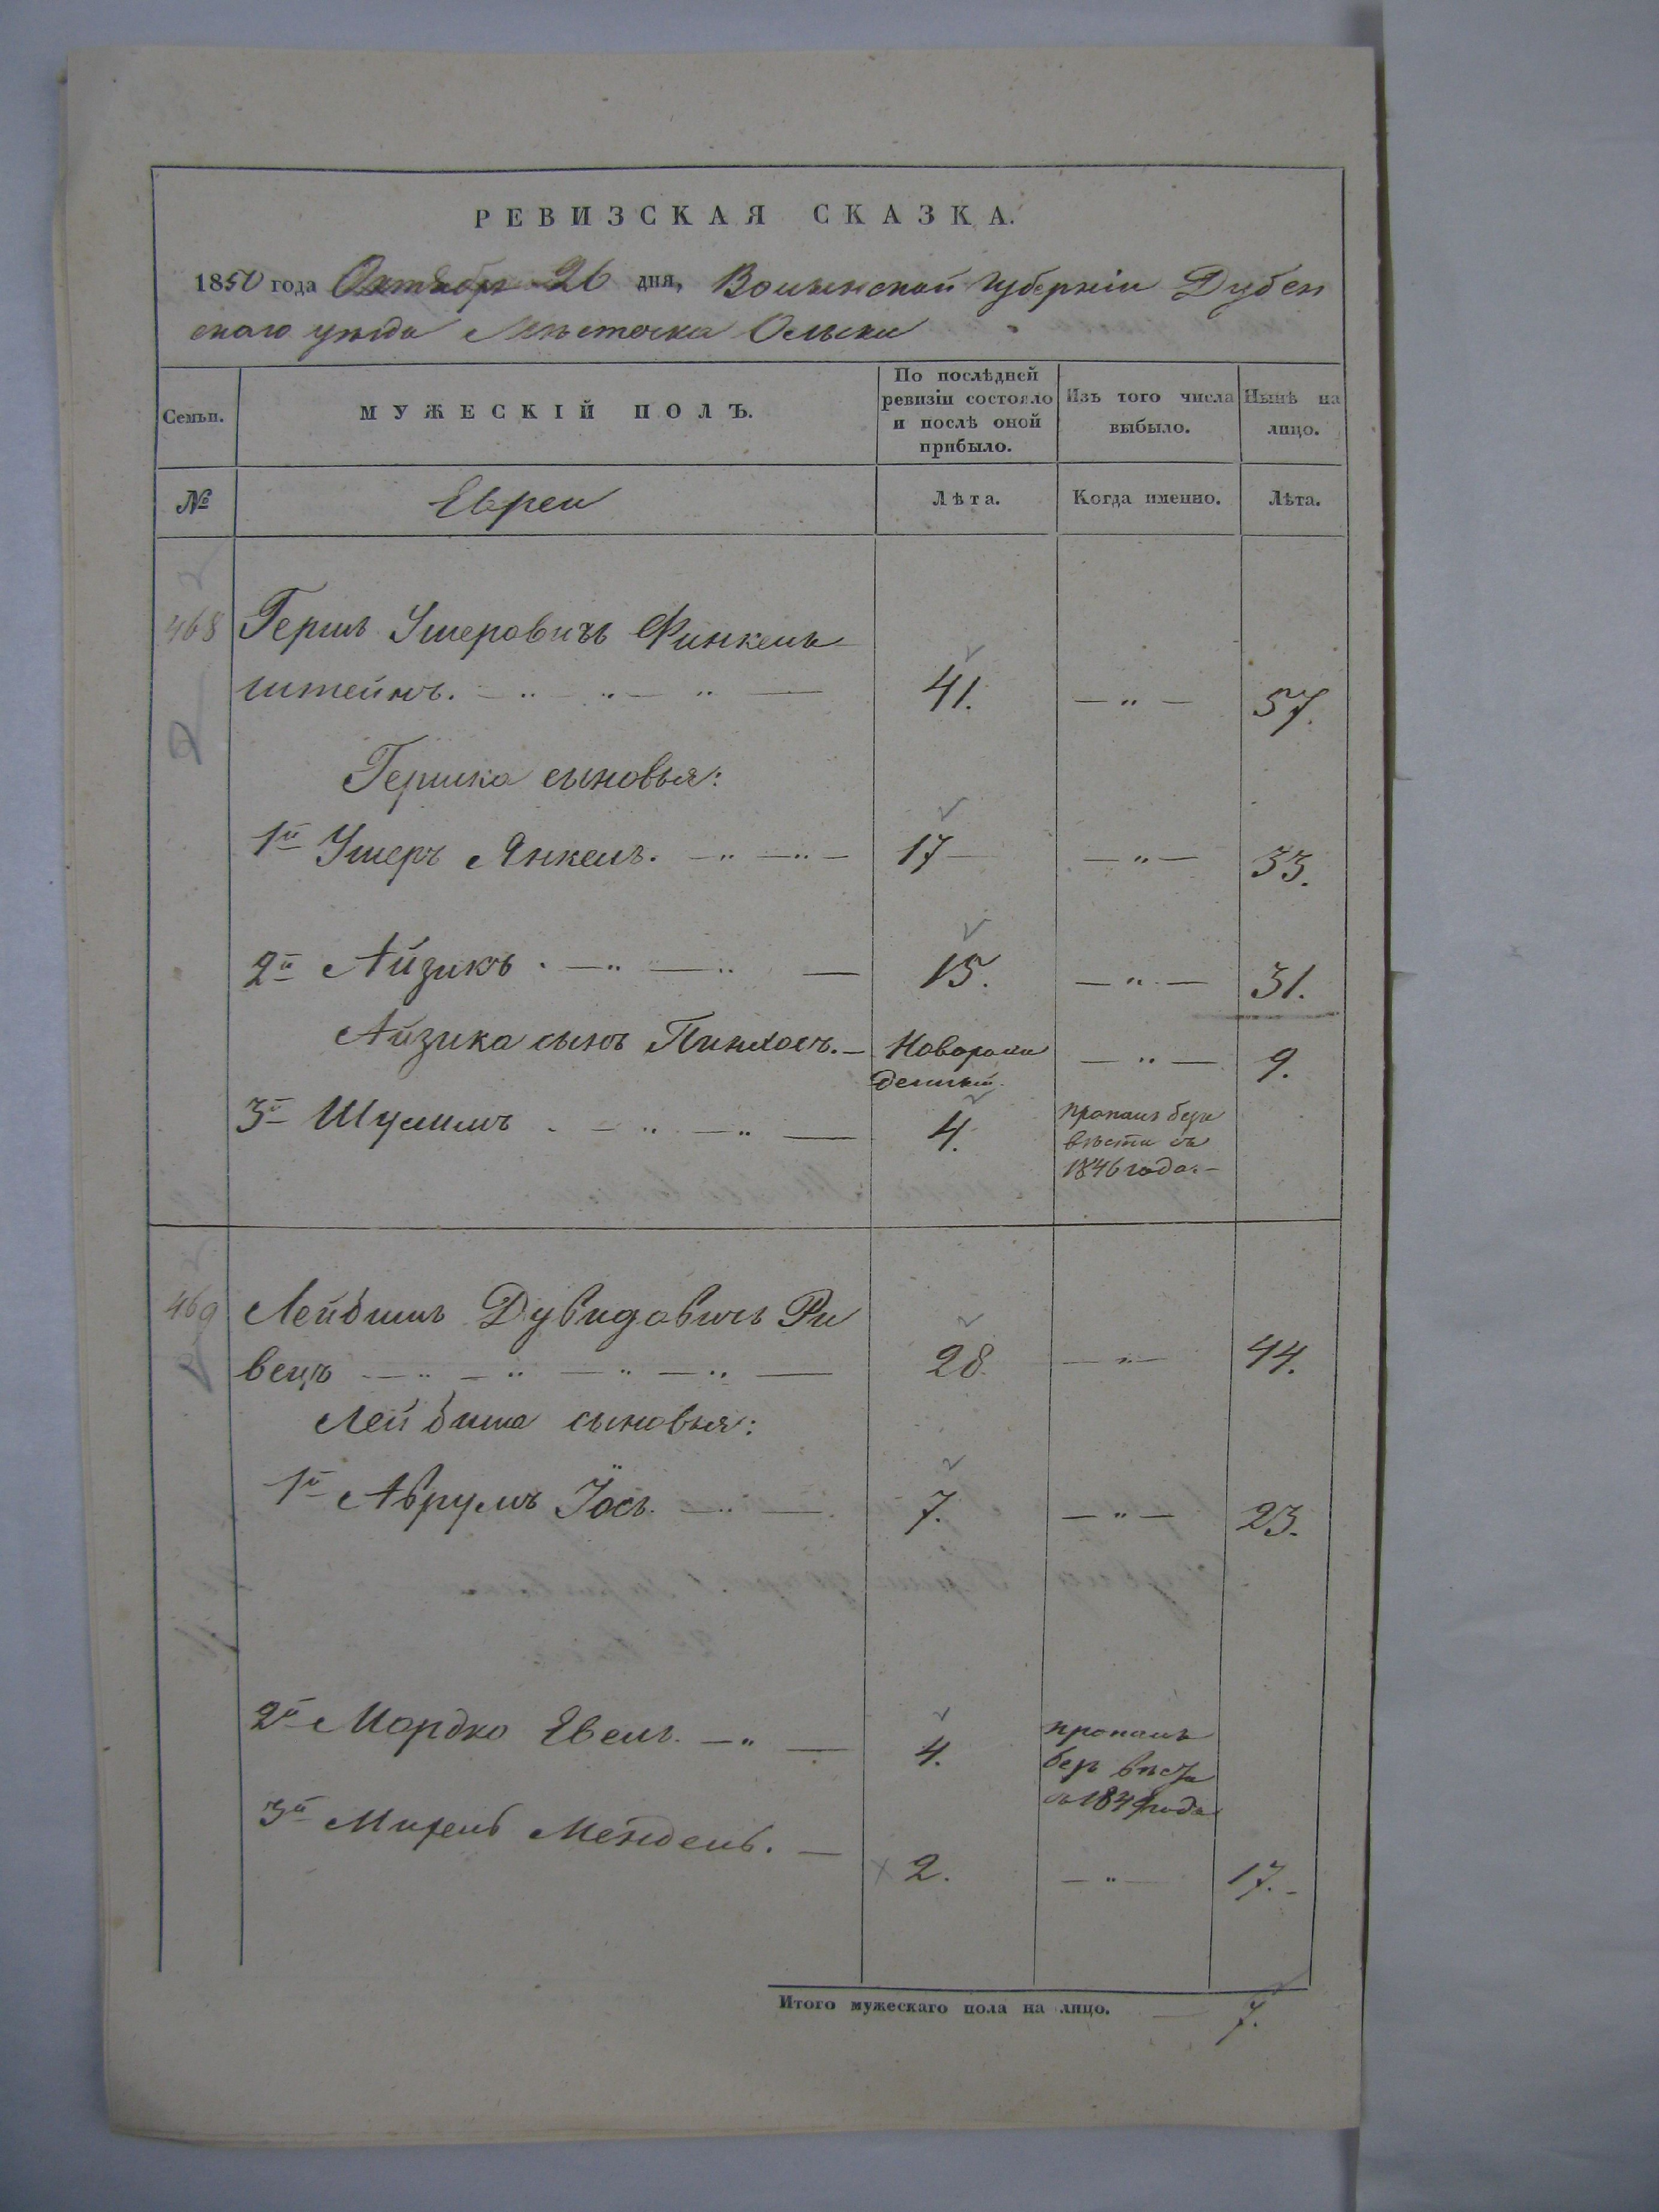 РЕВИЗСКАЯ СКАЗКА.
1850 года Октября 26 дня, Волынской губерніи Дубен
скаго уѣзда Мѣстечка Олыки
Семьи.
МУЖЕСКІЙ ПОЛЪ.
По послѣдней
ревизіи состояло
и послѣ оной
прибыло.
Изъ того числа
выбыло.
Нынѣ на
лицо.
№
Евреи
Лѣта.
Когда именно.
Лѣта.
468 Гершъ Умеровичъ Финкель
штейнъ. 41. — „ — 57.
Гершка сыновья:
1й Умеръ Янкель. 17 — „ — 33.
2й Айзикъ. 15. — „ — 31.
Айзика сынъ Пинхосъ. — Новорож
денный. — „ — 9.
3й Шулимъ 4.
пропалъ безъ
вѣсти съ
1846 года. —
469 Лейбишъ Дувидовичъ Ри
вецъ 28. — „ — 44.
Лейбиша сыновья:
1й Аврумъ Іось. 7. — „ — 23.
2й Мордко Евель. — „ — 4.
пропалъ
безъ вѣсти
съ 1849 года
3й Мендель. — 2. — „ — 17. —
Итого мужескаго пола на лицо. — 7.